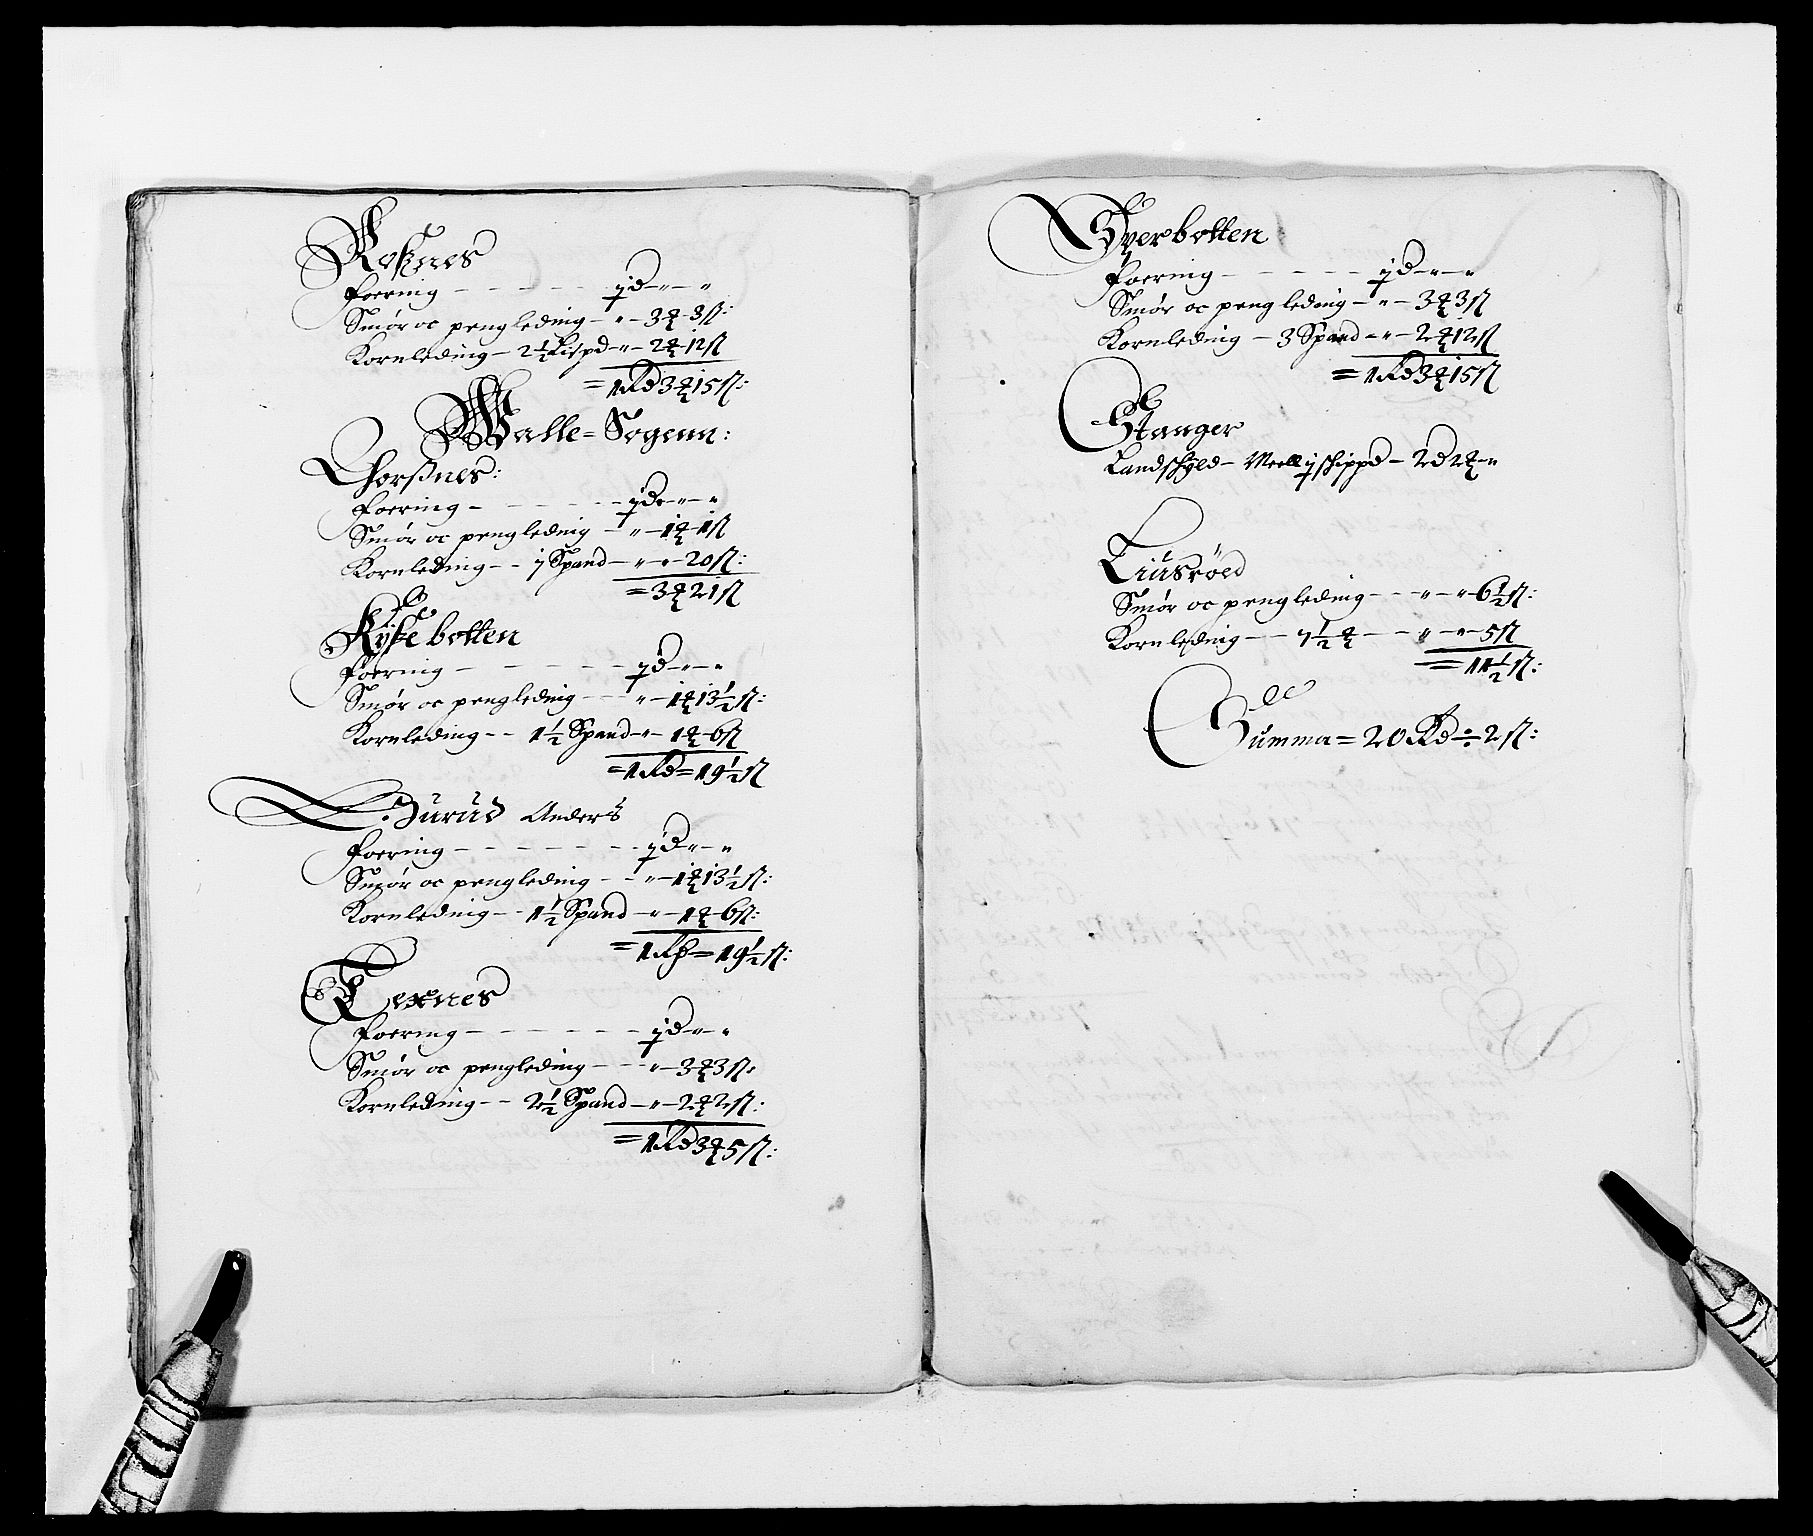 Roknes
Foering - - - - - - j d - " - "
Smør oc pengleding - " - 3 ꝸ - 3 ß:
Kornleding - 2½ Lispd - " - 2 ꝸ 12 ß
= 1 Rd 3 ꝸ 15 ß:
Walle = Sogenn:
Thorßnes:
Foering - - - - - - j d - " - "
Smør oc pengleding - " - 1 ꝸ 1 ß
Kornleding - - j Spand - " - " - 20 ß:
= 3 ꝸ 21 ß
Ryke botten
Foering - - - - - - j d - " - "
Smør oc pengleding - - " - 1 ꝸ 13½ ß:
Kornleding - - 1½ Spand - " - 1 ꝸ 6 ß
= 1 Rd = 19½ ß
Burud Anders
Foering - - - - - - j d - " - "
Smør oc pengleding - - " - 1 ꝸ 13½ ß:
Kornleding - - 1½ Spand - " - 1 ꝸ 6 ß:
= 1 Rd = 19½ ß:
Texnes
Foering - - - - - - j d - " - "
Smør oc pengleding - - - " - 3 ꝸ 3 ß:
Kornleding - - 2½ Spand - " - 2 ꝸ 2 ß:
= 1 Rd 3 ꝸ 5 ß:
Øyerbotten
Foering - - - - - - j d - " - "
Smør oc pengleding - " - 3 ꝸ 3 ß
Kornleding - 3 Spand - " - 2 ꝸ 12 ß
= 1 Rd 3 ꝸ 15 ß
Stanger
Landschyld - Meell j schippd - 2 d 2 ꝸ - "
Liusröed
Smør oc pengleding - - - " - " - 6½ ß:
Kornleding - - 7½ ꝸ - - " - " - 5 ß
= 11½ ß:
Summa = 20 Rd ÷ 2 ß: